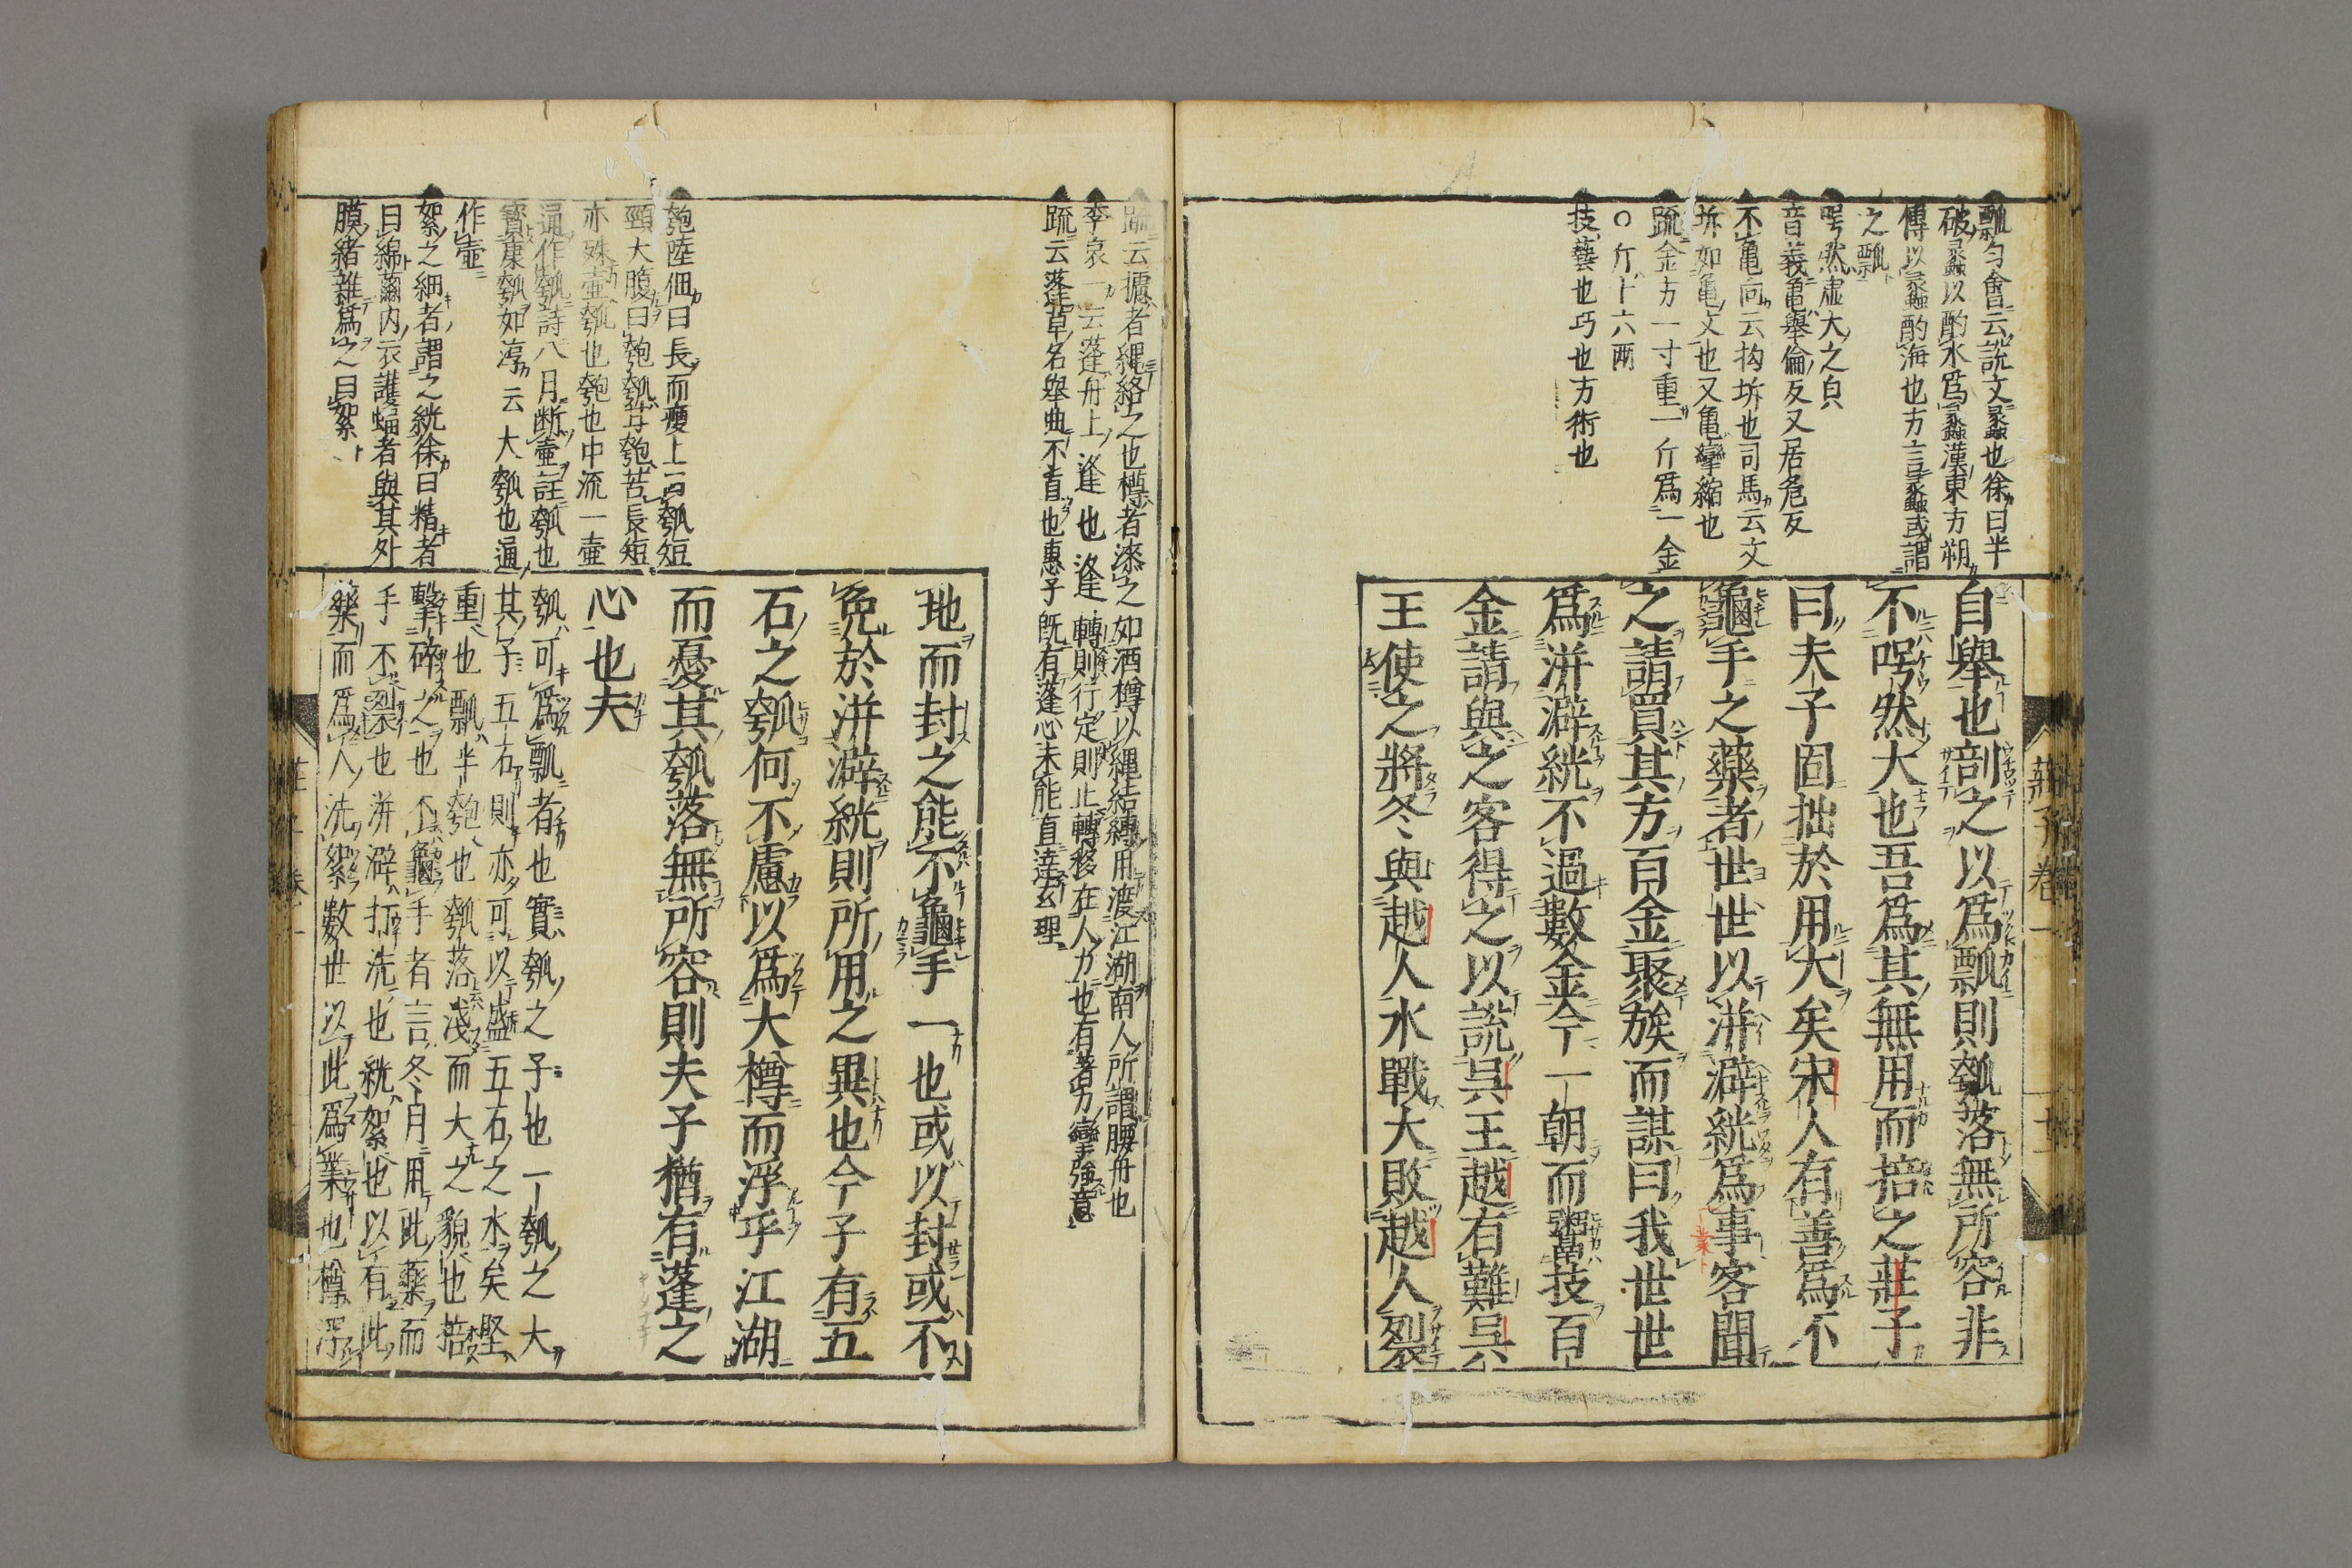 瓢匀會云説文蠡也徐曰半
破蠡以酌水爲蠡漢東方朔
傳以蠡酌海也方言蠡或謂
之瓢
呺然虚大之皃
音義龜擧倫反又居危反
不龜向云拘坼也司馬云文
坼如龜文也又龜攣縮也
疏金方一寸重一斤爲一金
○斤十六兩
技藝也巧也方術也
自舉也剖之以爲瓢則瓠落無所容非
不呺然大也吾爲其無用而掊之莊子
曰夫子固拙於用大矣宋人有善爲不
龜手之藥者世世以洴澼絖爲事客聞
之請買其方百金聚族而謀曰我世世
爲洴澼絖不過數金今一朝而鬻技百
金請與之客得之以說吳王越有難吳
王使之將冬與越人水戰大敗越人裂
莊子卷一
疏云攄者繩絡之也樽者漆之如酒樽以繩結縛用渡江湖南人所謂腰舟也
李哀一云蓬舟上逢也逢轉則行定則止轉移在人力也有著力攣強意
疏云蓬草名舉曲不直也惠子既有蓬心未能直達玄理
地而封之能不龜手一也或以封或不
免於洴澼絖則所用之異也今子有五
石之瓠何不慮以爲大樽而浮乎江湖
而憂其瓠落無所容則夫子猶有蓬之
心也夫
匏陸佃曰長而瘦上曰瓠短
頸大腹曰匏瓠甘匏苦長短
亦殊壺瓠也匏也中流一壺
通作瓠詩八月断壺註瓠也
寳康瓠如淳云大瓠也通
作壺
絮之細者謂之絖徐曰精者
曰綿繭内衣護蝠者與其外
膜緒雜爲之曰絮
瓠可爲瓢者也實瓠之子也一瓠之大
其子五石則亦可以盛五石之水矣堅
重也瓢半匏也瓠落淺而大之貌也掊
擊碎之也不龜手者言冬月用此藥而
手不裂也洴澼打洗也絖絮也以有此
藥而爲人洗絮數世以此爲業也樽浮